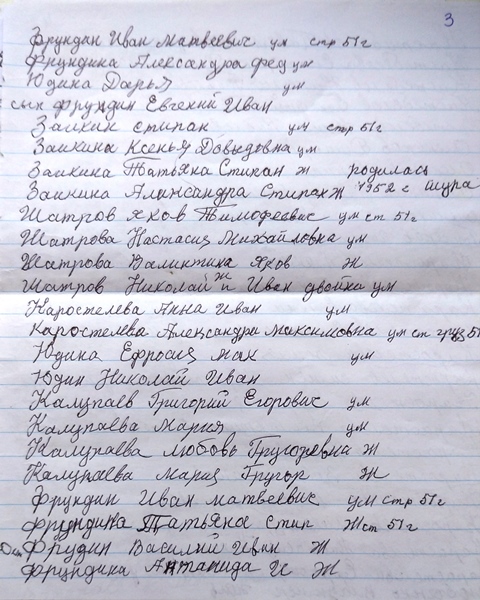 3
Фрундан Иван Матвеевис ум стр 51г
Фрундина Александра фед ум
Юдина Дарья ум
сын Фрундин Евгений Иван
Заикин стипан ум стр 51г
Заикина Ксенья Довыдовна ум
Заикина Татьяна Стипан ж родилась
Заикина Александра Стипан ж 1952 г
Шатров яков Тимофеевис ум ст 51г
Шатрова Настасия Михайловна ум
Шатрова Валинтина Яков ж
Шатров Николай ж и Иван двойна ум
Каростелева Анна Иван ум
Каростелева Александра Максимовна ум ст
Юдина Ефросия мак ум
Юдин Николай Иван
Калупаев Григорий Егоровис ум
Калупаева Мария ум
Калупаева Любовь Григоревна ж
Калупаева Мария Григор ж
Фрундин Иван матвеевис ум стр 51г
Фрундина Татьяна стип ж ст 51г
Фрудин Василий Иван ж
Фрундина Антанида И ж